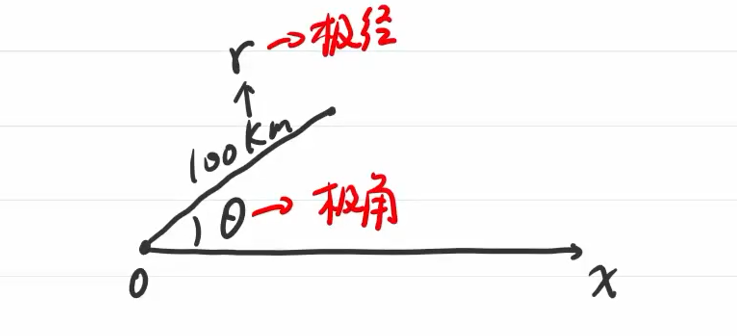 r→极径
100km
θ→极角
0
x